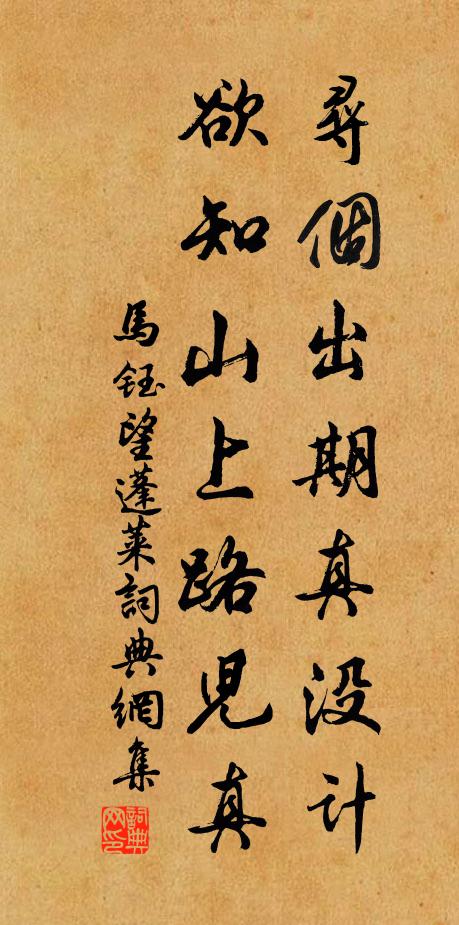 尋個出期真没计
欲知山上路児真
馬鈺望蓬萊詞典網集
詞典网印